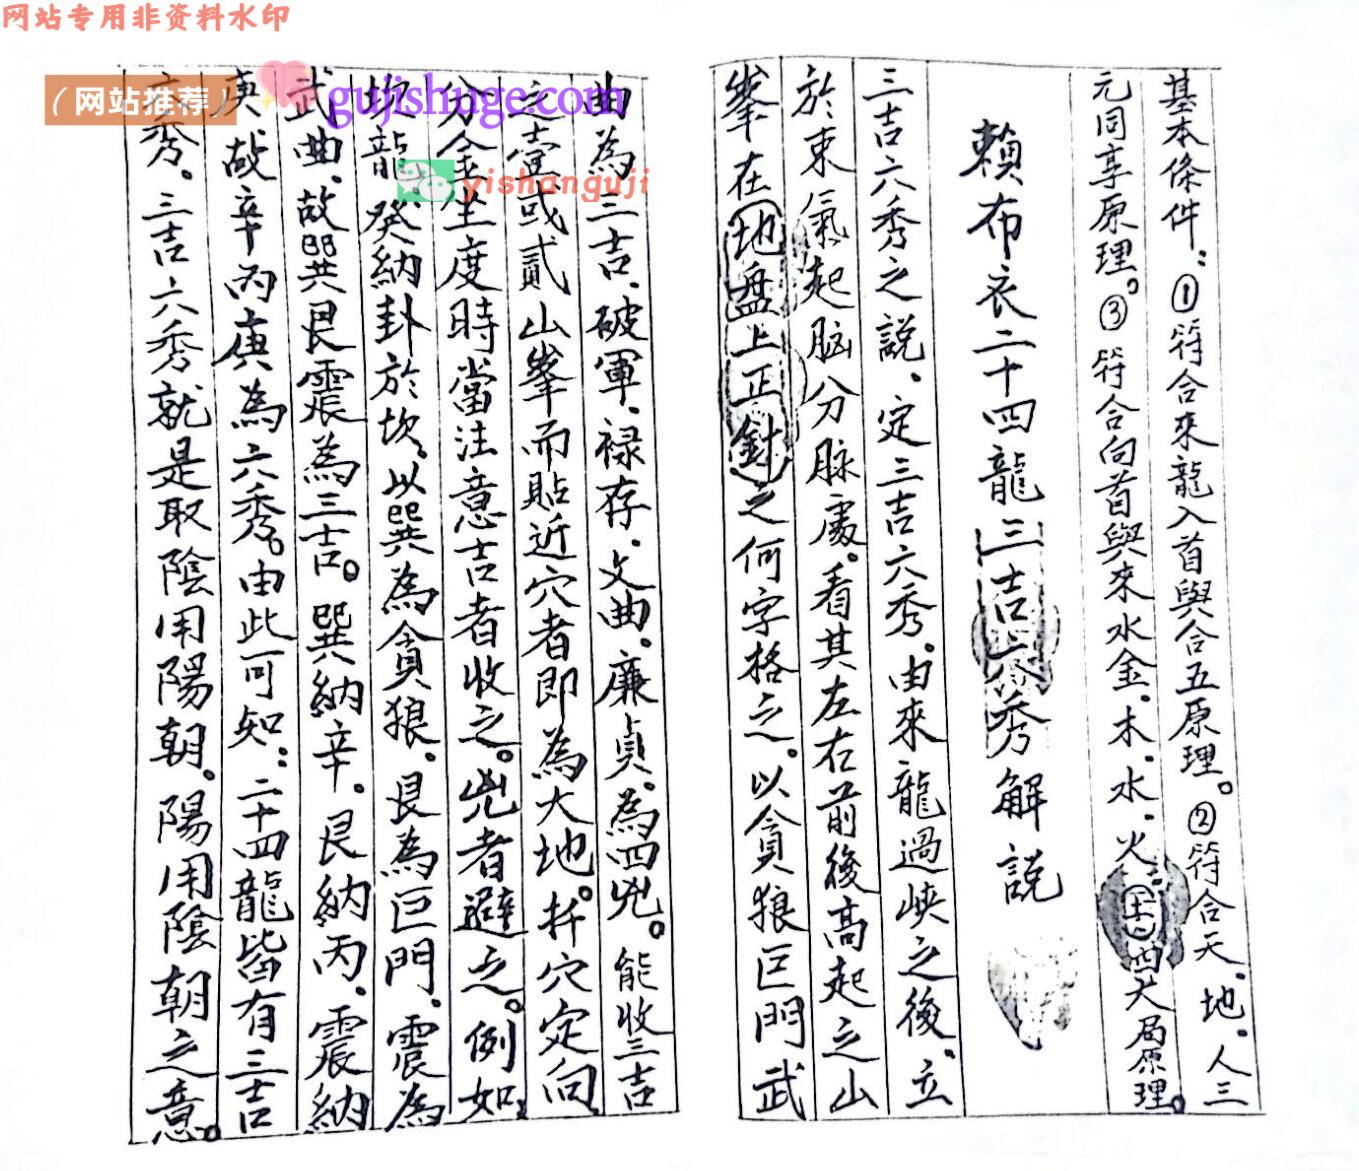 网站专用非资料水印
(网站推荐)
gujishuge.com
yishanguji
基本條件：①符合來龍入首與合五原理。②符合天、地、人三
元同享原理。③符合向首與來水金、木、水、火、土、四大局原理。
賴布衣二十四龍三吉六秀解説
三吉六秀之説、定三吉六秀、由來龍過峽之後、立
於束氣起脑分脉處。看其左右前後高起之山
峯在地盤上正針之何字格之、以貪狼巨門武
曲為三吉、破軍、禄存、文曲、廉貞、為四兇。能收三吉
之壹或貳山峯而貼近穴者即為大地。扦穴定向
分金坐度時當注意吉者收之。兇者避之。例如
坎龍、癸納卦於坎、以巽為貪狼、艮為巨門、震為
武曲、故巽艮震為三吉。巽納辛。艮納丙、震納
庚故辛丙庚為六秀。由此可知：二十四龍皆有三吉
六秀。三吉六秀就是取陰用陽朝、陽用陰朝之意。